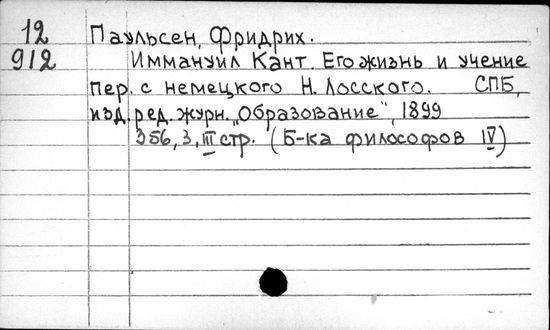 12 Паульсен, Фридрих.
912 Иммануил Кант. Его жизнь и учение
пер. с немецкого Н. Лосского. СПБ,
изд. ред. журн. „Образование", 1899
356, 3, III стр. (Б-ка философов IV)